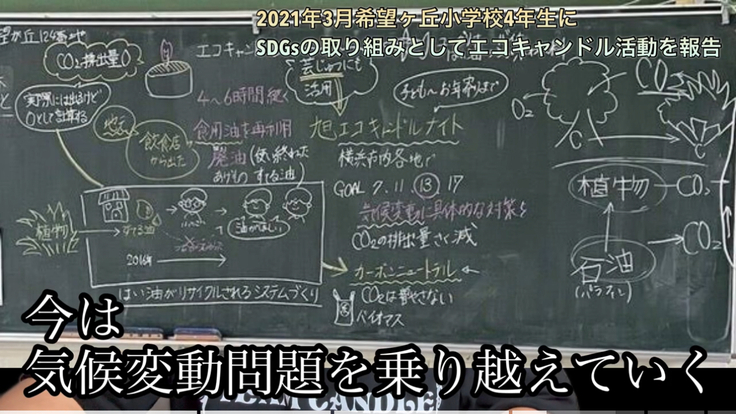 2021年3月希望ヶ丘小学校4年生に
SDGsの取り組みとしてエコキャンドル活動を報告
CO₂排出量0
実際には出るけど
0として計算する
エコキャン
芸じゅつにも
活用
子ども〜お年寄りまで
4〜6時間続く
地
飲食店
から出た
食用油を再利用
廃油(使い終わった
あげもの すてる油)
旭エコキャンドルナイト
横浜市内各地で
GOAL 7.11.13.17
気候変動に具体的な対策を
CO₂の排出量さく減
カーボンニュートラル
CO₂は増やさない
バイオマス
植物
すてる油
油がほしい
2016年
はい油がリサイクルされるシステムづくり
O₂
CO₂
C
植物
CO₂
石油
(パラフィン)
CO₂
今は
気候変動問題を乗り越えていく
TEAM CANDLE